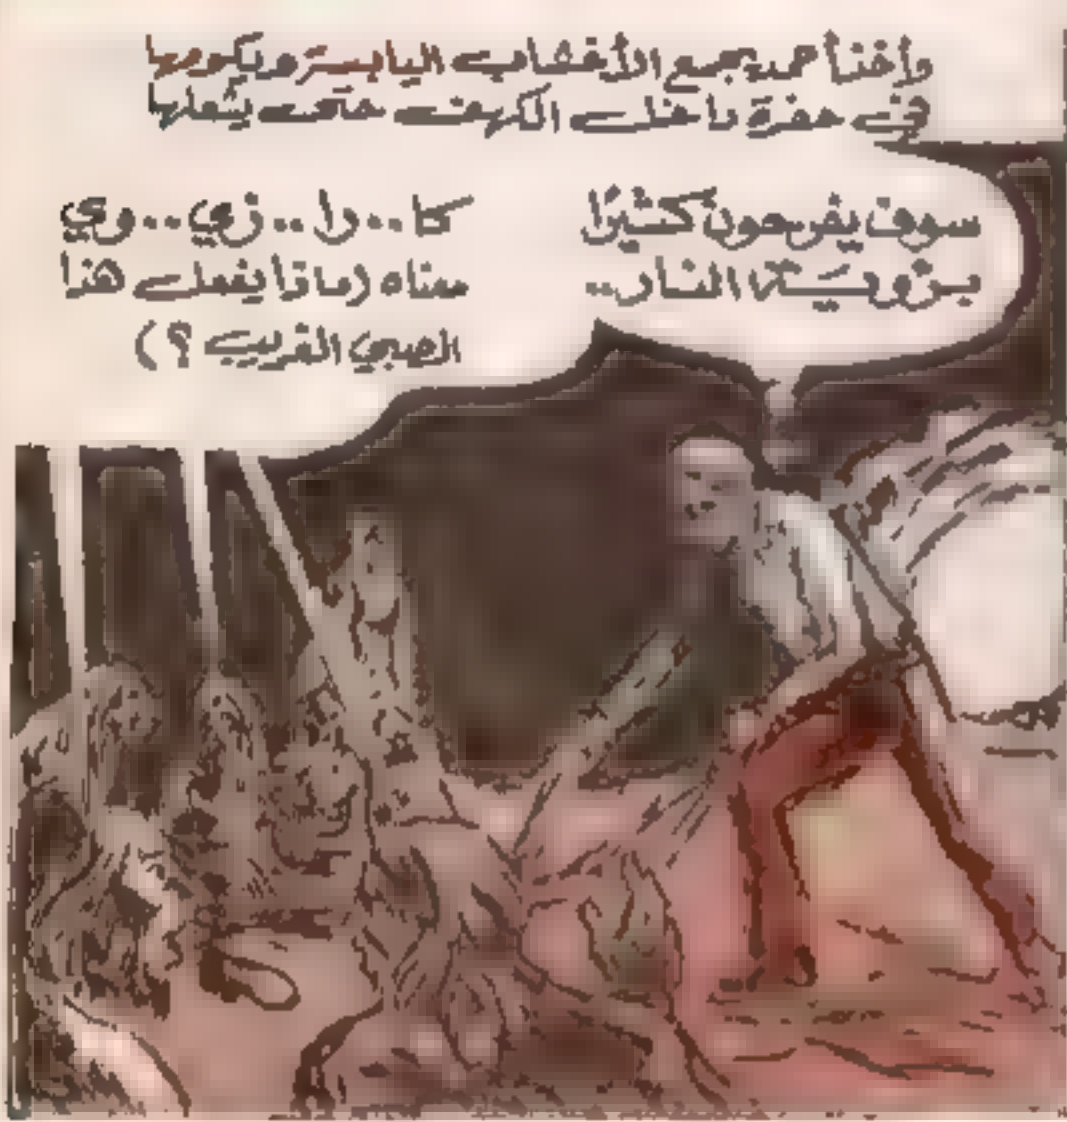 وأخذ أحمد يجمع الأخشاب اليابسة ويكومها
في حفرة داخل الكهف حتى يشعلها
سوف يفرحون كثيرًا
برؤية النار..
كا..را..زي..وي
معناه (ماذا يفعل هذا
الصبي الغريب ؟)